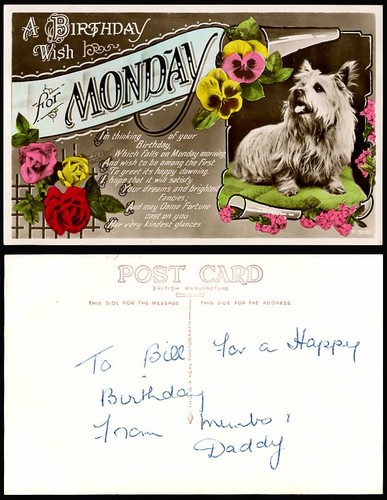 A BIRTHDAY
Wish
for MONDAY
I'm thinking of your
Birthday,
Which falls on Monday morning
And wish to be among the First
To greet its happy dawning.
I hope that it will satisfy
Your dreams and brightest
fancies;
And may Dame Fortune
cast on you
Her very kindest glances.
POST CARD
BRITISH MANUFACTURE
THIS SIDE FOR THE MESSAGE
THIS SIDE FOR THE ADDRESS
To Bill for a Happy
Birthday
from Mumbo &
Daddy